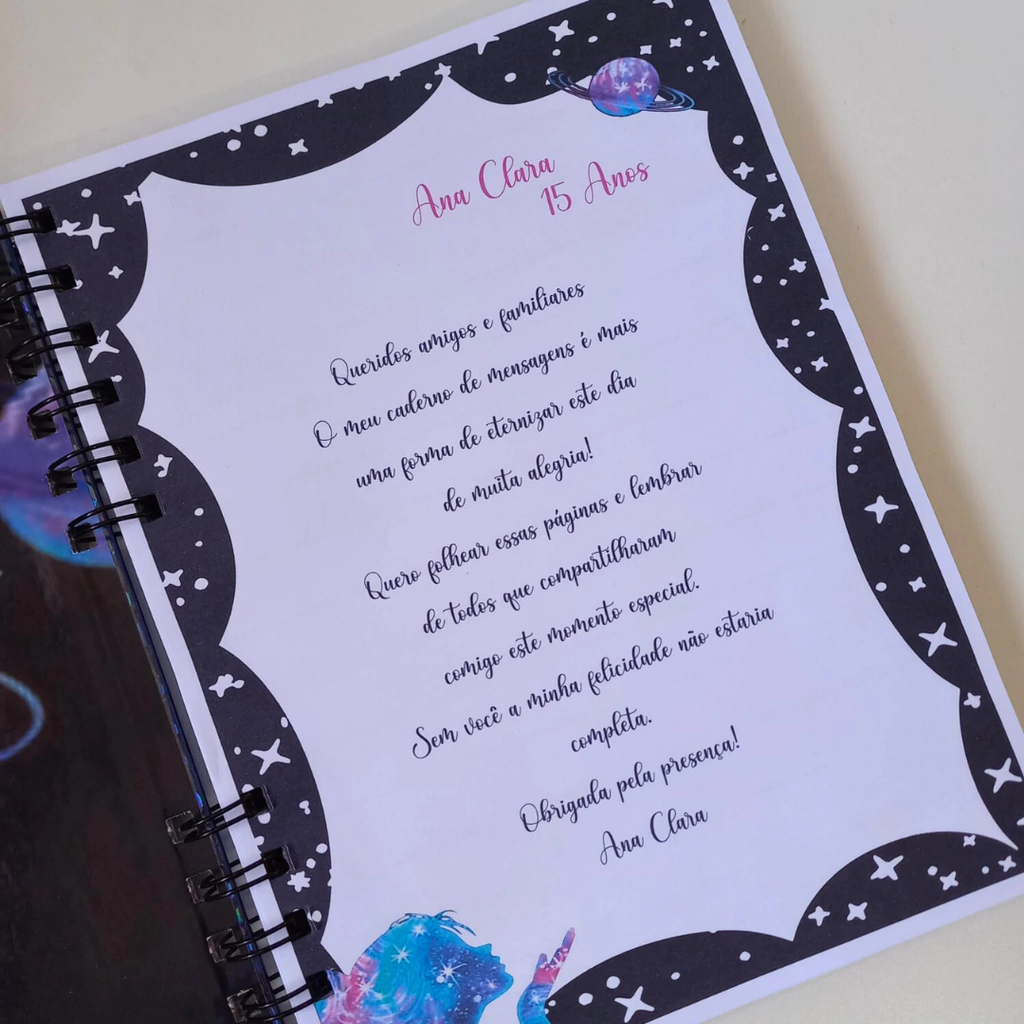 Ana Clara
15 Anos
Queridos amigos e familiares
O meu caderno de mensagens é mais
uma forma de eternizar este dia
de muita alegria!
Quero folhear essas páginas e lembrar
de todos que compartilharam
comigo este momento especial.
Sem você a minha felicidade não estaria
completa.
Obrigada pela presença!
Ana Clara